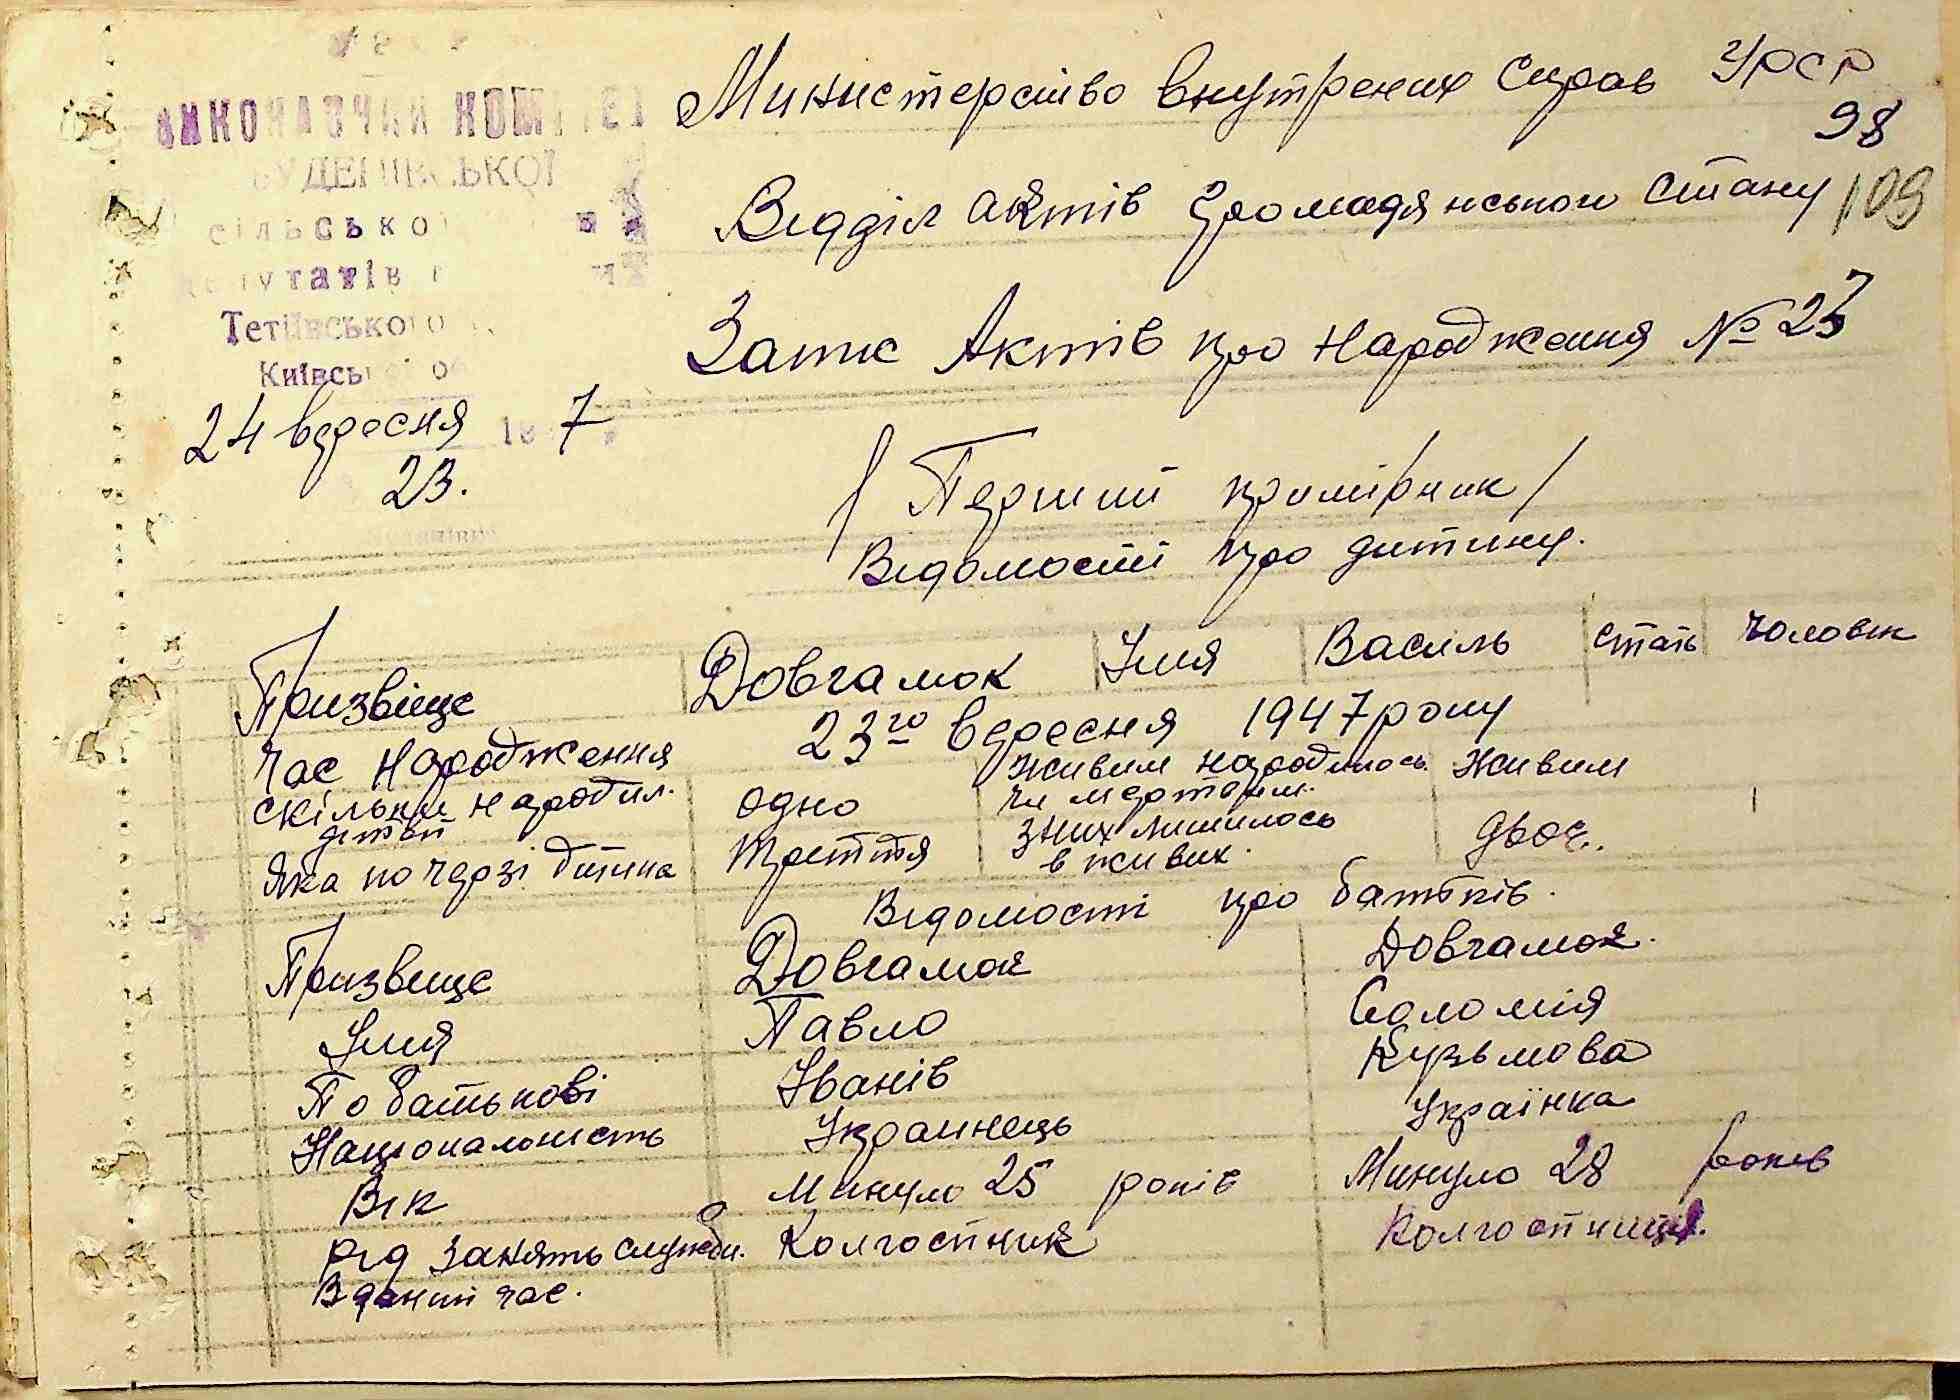 Министерство внутрених справ УРСР
98
Відділ актів громадянського стану 109
Запис Актів про народження № 23
ВИКОНАВЧИЙ КОМІТЕТ
сільської
депутатів
Тетіївського
Київської об
24 вересня 7
23.
/ Перший примірник /
Відомості про дитину.
Призвіще Довгамок Імя Василь стать чоловік
Час народження 23го вересня 1947 року
скільки народил. дітей одно живим народилось чи мертвим. живим
Яка по черзі дитина треття з них лишилось в живих. двоє.
Відомості про батьків.
Призвище Довгамок Довгамок.
Імя Павло Соломія
По батькові Іванів Кузьмова
Національність Украинець Українка
Вік Минуло 25 років Минуло 28 років
Рід занять служби. Колгостник Колгостниця.
В даний час.